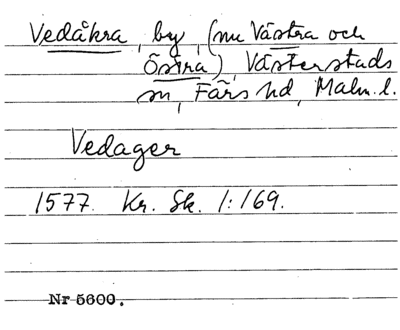 Vedåkra, by, (nu Västra och
Östra), Västerstads
sn, Färs hd, Malm. l.
Vedager
1577. Kr. Sk. 1:169.
Nr 5600.